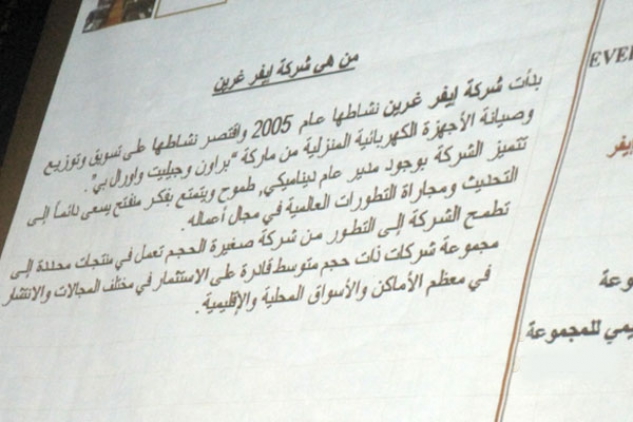 من هي شركة إيفر غرين
بدأت شركة إيفر غرين نشاطها عام 2005 واقتصر نشاطها على تسويق وتوزيع
وصيانة الأجهزة الكهربائية المنزلية من ماركة "براون وجيليت واورال بي".
تتميز الشركة بوجود مدير عام ديناميكي, طموح ويتمتع بفكر منفتح يسعى دائماً إلى
التحديث ومجاراة التطورات العالمية في مجال أعماله.
تطمح الشركة إلى التطور من شركة صغيرة الحجم تعمل في منتجات محددة إلى
مجموعة شركات ذات حجم متوسط قادرة على الاستثمار في مختلف المجالات والانتشار
في معظم الأماكن والأسواق المحلية والإقليمية.
EVE
إيفر
وعة
يمي للمجموعة